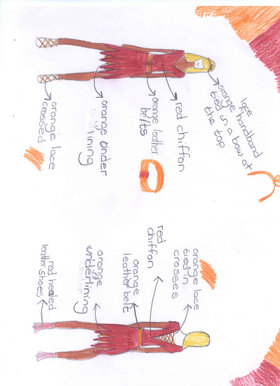 lace
orange handband
tied in a bow at
the top
red chiffon
orange leather
belts
orange under
lining
orange lace
crossed
orange lace
tied in
crosses
red
chiffon
orange
leather belt
orange
underlining
red healed
leather shoes